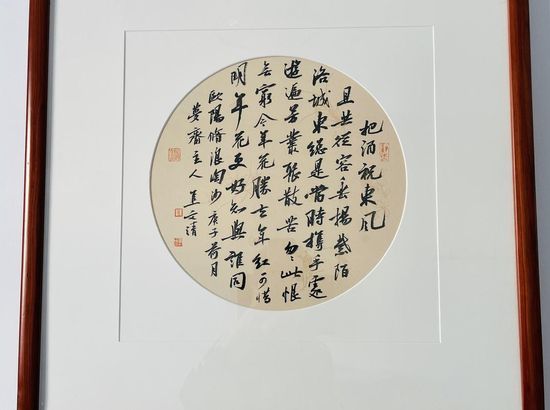 把酒祝東风
且共從容垂楊紫陌
洛城東總是當時攜手處
遊遍芳叢聚散苦匆々此恨
无窮今年花勝去年紅可惜
明年花更好知與誰同
歐陽脩浪淘沙庚子荷月
夢齋主人